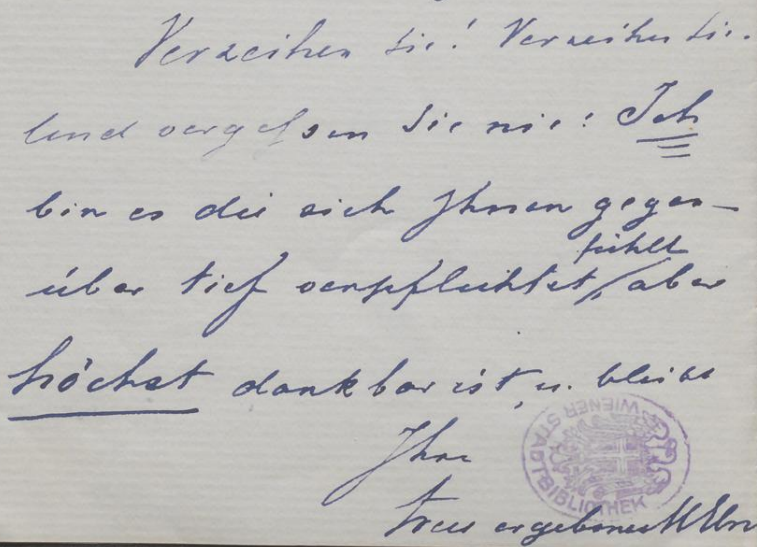 Verzeihen Sie! Verzeihen Sie.
und vergessen Sie nie: Ich
bin es die sich Ihnen gegen-
fühlt
über tief verpflichtet, aber
höchst dankbar ist, u. bleibe
Ihre
treu ergebene
WIENER STADTBIBLIOTHEK